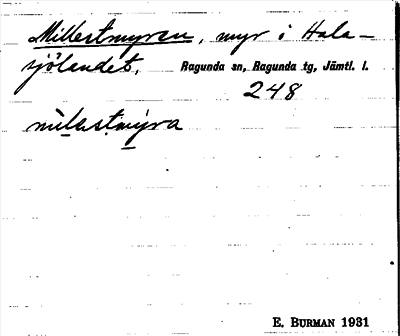 Millestmyren, myr i Hala-
sjölandet. Ragunda sn, Ragunda tg, Jämtl. l.
248
mìlestmýra
E. BURMAN 1931